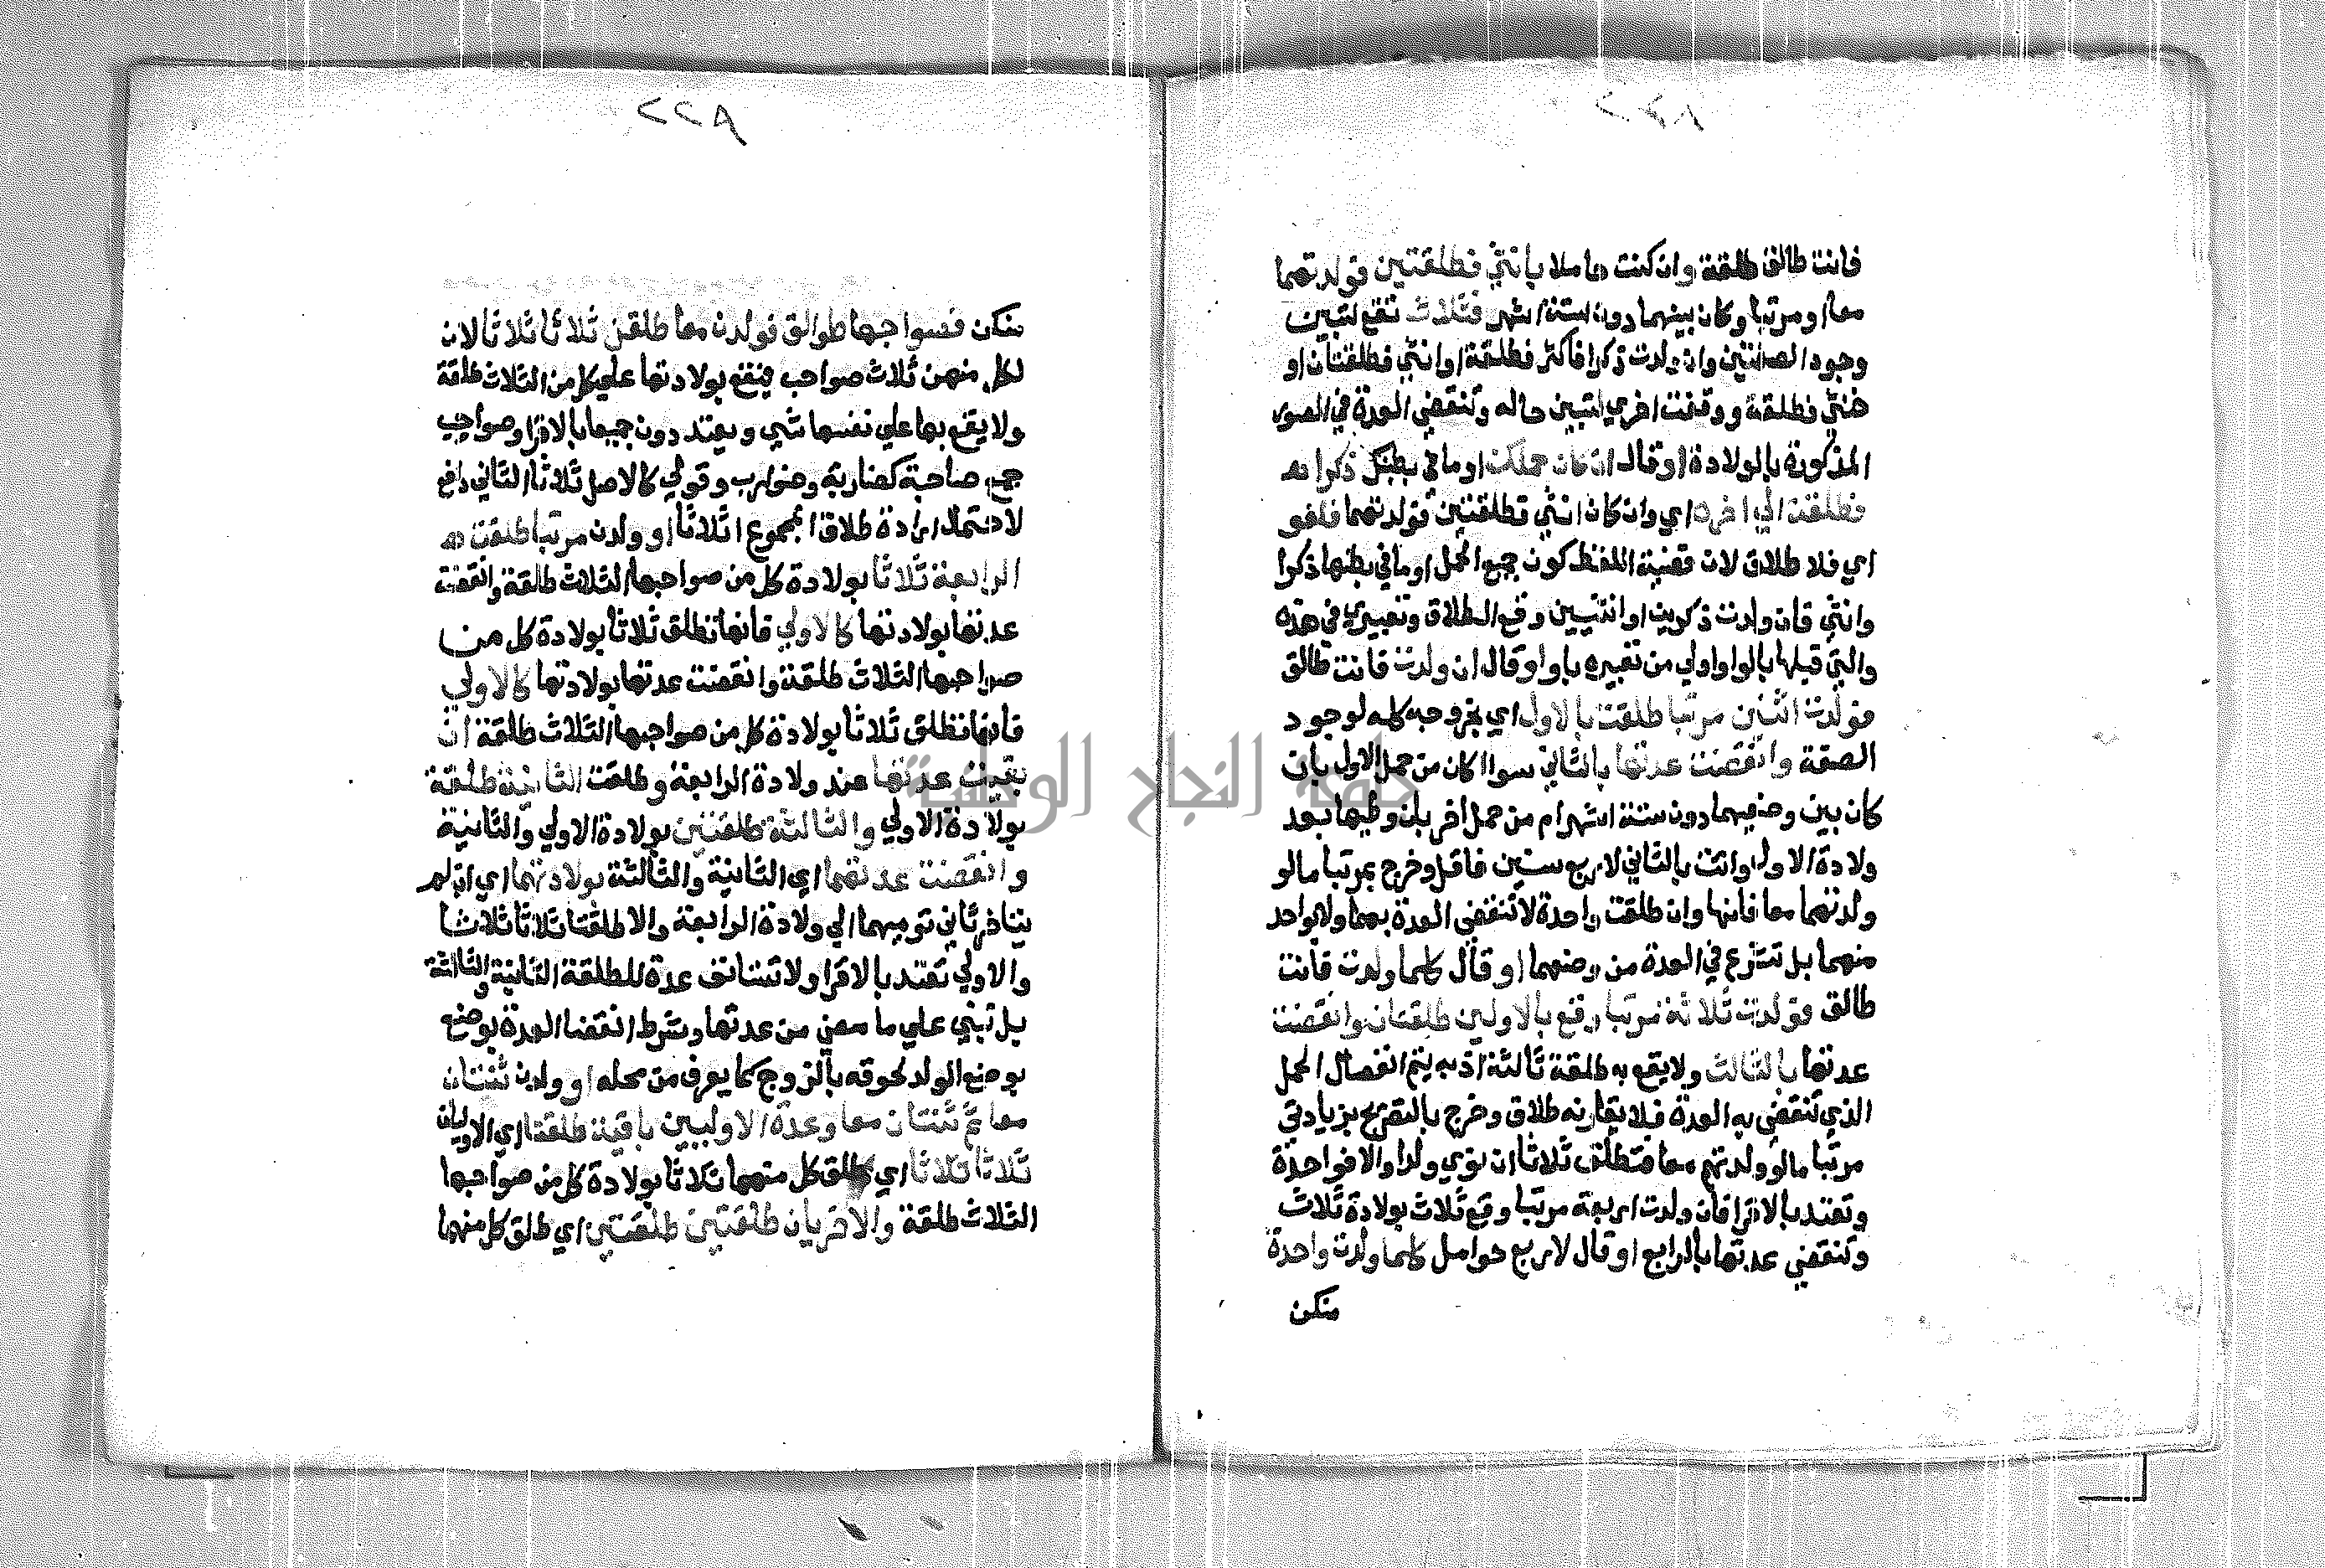 فانت طالق طلقة وان كنت حاملا بانثي فطلقتين فولدتهما
معا او مرتبا وكان بينهما دون ستة اشهر فثلاث تقع لتبين
وجود الصفتين وان ولدت ذكرا فاكثر فطلقة او انثي فطلقتان او
خنثي فطلقة ووقفت اخري لتبين حاله وتنقضي العدة في الصور
المذكورة بالولادة او قال ان كان حملك او ما في بطنك ذكرا
فطلقة الي اخره اي وان كان انثي فطلقتين فولدتهما فلغو
اي فلا طلاق لان قضية اللفظ كون جميع الحمل او ما في بطنها ذكرا
وانثي فان ولدت ذكرين او انثيين وقع الطلاق وتعبيري في هذه
والتي قبلها بالواو اولي من تعبيره باو او قال ان ولدت فانت طالق
فولدت اثنين مرتبا طلقت بالاول اي بخروجه كله لوجود
الصفة وانقضت عدتها بالثاني سوا اكان من حمل الاول بان
كان بين وضعيهما دون ستة اشهر ام من حمل اخر بان وطيها بعد
ولادة الاول واتت بالثاني لاربع سنين فاقل وخرج بمرتبا ما لو
ولدتهما معا فانها وان طلقت واحدة لا تنقضي العدة بهما ولا بواحد
منهما بل تشرع في العدة من وضعهما او قال كلما ولدت فانت
طالق فولدت ثلاثة مرتبا وقع بالاولين طلقتان وانقضت
عدتها بالثالث ولا يقع به طلقة ثالثة اذ به يتم انفصال الحمل
الذي تنقضي به العدة فلا يقارنه طلاق وخرج بالتصريح بزيادتي
مرتبا ما لو ولدتهم معا فتطلق ثلاثا ان نوي ولدا والا فواحدة
وتعتد بالاقرا فان ولدت اربعة مرتبا وقع ثلاث بولادة ثلاث
وتنقضي عدتها بالرابع او قال لاربع حوامل كلما ولدت واحدة
منكن
منكن فصواحبها طوالق فولدن معا طلقن ثلاثا ثلاثا لان
لكل منهن ثلاث صواحب فيقع بولادتها علي كل من الثلاث طلقة
ولا يقع بها علي نفسها شي ويعتددن جميعا بالاقرا وصواحب
جمع صاحبة كضاربة وضوارب وقولي كالاصل ثلاثا الثاني دافع
لاحتمال ارادة طلاق المجموع ثلاثا او ولدن مرتبا طلقت
الرابعة ثلاثا بولادة كل من صواحبها الثلاث طلقة وانقضت
عدتها بولادتها كالاولي فانها تطلق ثلاثا بولادة كل من
صواحبها الثلاث طلقة وانقضت عدتها بولادتها كالاولي
فانها تطلق ثلاثا بولادة كل من صواحبها الثلاث طلقة ان
بقيت عدتها عند ولادة الرابعة وطلقت الثانية طلقة
بولادة الاولي والثالثة طلقتين بولادة الاولي والثانية
وانقضت عدتهما اي الثانية والثالثة بولادتهما اي ان لم
يتاخر ثاني توميهما الي ولادة الرابعة والا طلقتا ثلاثا ثلاثا
والاولي تعتد بالاقرا ولا تستانف عدة للطلقة الثانية والثالثة
بل تبني علي ما مضي من عدتها وشرط انقضا العدة بوضع
بوضع الولد لحوقه بالزوج كما يعرف من محله او ولدن ثنتان
معا ثم ثنتان معا وعدة الاوليين باقية طلقتا اي الاوليان
ثلاثا ثلاثا اي طلق كل منهما ثلاثا بولادة كل من صواحبها
الثلاث طلقة والاخريان طلقتين طلقتين اي طلق كل منهما